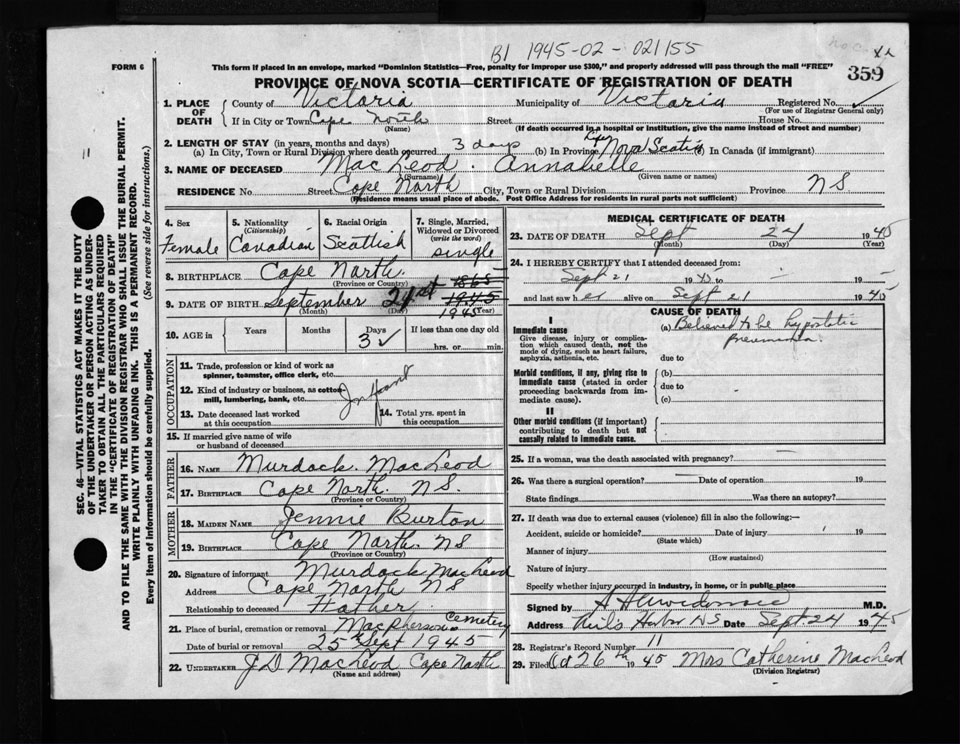 B1 1945-02-021155
FORM 6
This form if placed in an envelope, marked "Dominion Statistics—Free, penalty for improper use $300," and properly addressed will pass through the mail "FREE"
PROVINCE OF NOVA SCOTIA—CERTIFICATE OF REGISTRATION OF DEATH
359
1. PLACE OF DEATH
County of Victoria Municipality of Victoria Registered No.
(For use of Registrar General only)
If in City or Town Cape North Street House No.
(Name) (If death occurred in a hospital or institution, give the name instead of street and number)
2. LENGTH OF STAY (in years, months and days)
(a) In City, Town or Rural Division where death occurred 3 days (b) In Province Nova Scotia (c) In Canada (if immigrant)
3. NAME OF DECEASED MacLeod Annabelle
(Surname) (Given name or names)
RESIDENCE No. Street Cape North City, Town or Rural Division Province NS
(Residence means usual place of abode. Post Office Address for residents in rural parts not sufficient)
4. Sex Female
5. Nationality (Citizenship) Canadian
6. Racial Origin Scottish
7. Single, Married, Widowed or Divorced (write the word) single
8. BIRTHPLACE Cape North
(Province or Country)
9. DATE OF BIRTH September 21st 1865 1945 1945
(Month) (Day) (Year)
10. AGE in Years Months Days 3 ✓ If less than one day old hrs. or min.
OCCUPATION
11. Trade, profession or kind of work as spinner, teamster, office clerk, etc.
12. Kind of industry or business, as cotton mill, lumbering, bank, etc.
Infant
13. Date deceased last worked at this occupation
14. Total yrs. spent in this occupation
15. If married give name of wife or husband of deceased
FATHER
16. NAME Murdock MacLeod
17. BIRTHPLACE Cape North N.S.
(Province or Country)
MOTHER
18. MAIDEN NAME Jennie Burton
19. BIRTHPLACE Cape North NS
(Province or Country)
20. Signature of informant Murdock MacLeod
Address Cape North NS
Relationship to deceased Father
21. Place of burial, cremation or removal MacPherson Cemetery
Date of burial or removal 25 Sept 1945
22. UNDERTAKER J.D MacLeod Cape North
(Name and address)
MEDICAL CERTIFICATE OF DEATH
23. DATE OF DEATH Sept 24 1945
(Month) (Day) (Year)
24. I HEREBY CERTIFY that I attended deceased from:
Sept 21 1945 to 19
and last saw her alive on Sept 21 1945
CAUSE OF DEATH
I
Immediate cause
Give disease, injury or complication which caused death, not the mode of dying, such as heart failure, asphyxia, asthenia, etc.
(a) Believed to be hypostatic pneumonia
due to
Morbid conditions, if any, giving rise to immediate cause (stated in order proceeding backwards from immediate cause).
(b)
due to
(c)
II
Other morbid conditions (if important) contributing to death but not causally related to immediate cause.
25. If a woman, was the death associated with pregnancy?
26. Was there a surgical operation? Date of operation 19
State findings Was there an autopsy?
27. If death was due to external causes (violence) fill in also the following:—
Accident, suicide or homicide? Date of injury 19
(State which)
Manner of injury
(How sustained)
Nature of injury
Specify whether injury occurred in industry, in home, or in public place
Signed by M.D.
Address Neil's Harbor NS Date Sept 24 1945
28. Registrar's Record Number 11
29. Filed Oct 26th 1945 Mrs Catherine MacLeod
(Division Registrar)
SEC. 46—VITAL STATISTICS ACT MAKES IT THE DUTY
OF THE UNDERTAKER OR PERSON ACTING AS UNDER-
TAKER TO OBTAIN ALL THE PARTICULARS REQUIRED
IN THE "CERTIFICATE OF REGISTRATION OF DEATH"
AND TO FILE THE SAME WITH THE DIVISION REGISTRAR WHO SHALL ISSUE THE BURIAL PERMIT.
WRITE PLAINLY WITH UNFADING INK. THIS IS A PERMANENT RECORD.
Every item of information should be carefully supplied. (See reverse side for instructions.)